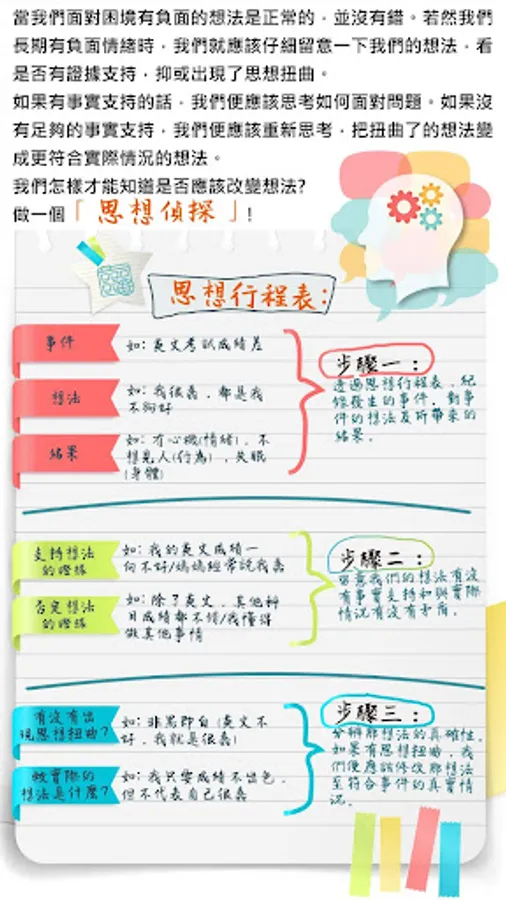 當我們面對困境有負面的想法是正常的，並沒有錯。若然我們
長期有負面情緒時，我們就應該仔細留意一下我們的想法，看
是否有證據支持，抑或出現了思想扭曲。
如果有事實支持的話，我們便應該思考如何面對問題。如果沒
有足夠的事實支持，我們便應該重新思考，把扭曲了的想法變
成更符合實際情況的想法。
我們怎樣才能知道是否應該改變想法?
做一個「思想偵探」!
思想行程表:
事件
如: 英文考試成績差
想法
如: 我很蠢，都是我
不夠好
結果
如: 冇心機(情緒)，不
想見人(行為)，失眠
(身體)
步驟一:
透過思想行程表，紀
錄發生的事件，對事
件的想法及所帶來的
結果。
支持想法
的證據
如: 我的英文成績一
向不好/媽媽經常說我蠢
否定想法
的證據
如: 除了英文，其他科
目成績都不錯/我懂得
做其他事情
步驟二:
留意我們的想法有沒
有事實支持和與實際
情況有沒有矛盾。
有沒有出
現思想扭曲?
如: 非黑即白 (英文不
好，我就是很蠢)
較實際的
想法是什麼?
如: 我只要成績不出色，
但不代表自己很蠢
步驟三:
分辨那想法的真確性。
如果有思想扭曲，我
們便應該修改那想法
至符合事件的真實情
況。